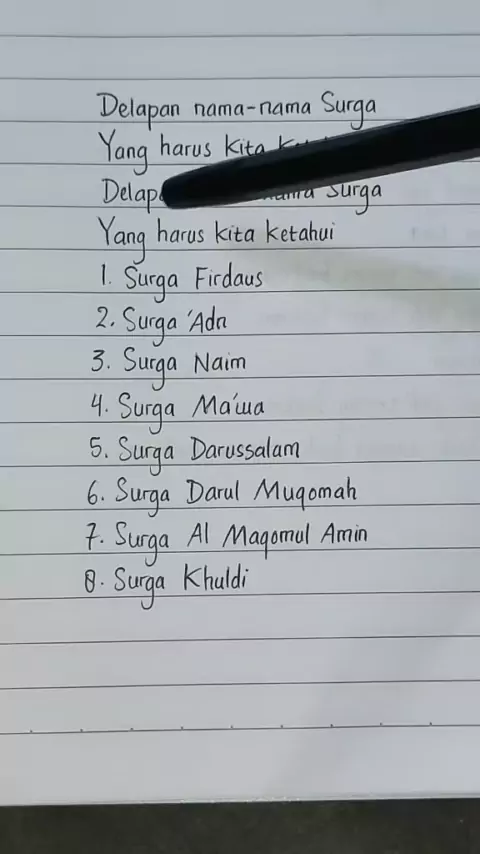 Delapan nama-nama Surga
Yang harus kita
Surga
Yang harus kita ketahui
1. Surga Firdaus
2. Surga 'Adn
3. Surga Naim
4. Surga Ma'wa
5. Surga Darussalam
6. Surga Darul Muqomah
7. Surga Al Maqomul Amin
8. Surga Khuldi